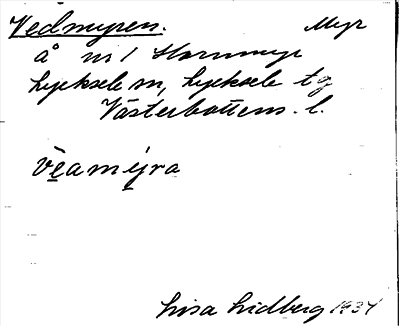 Vedmyren. Myr
å nr 1 Stormmyr
Lycksele sn, Lycksele tg
Västerbottens l.
vèamýra
Lisa Lidberg 1934